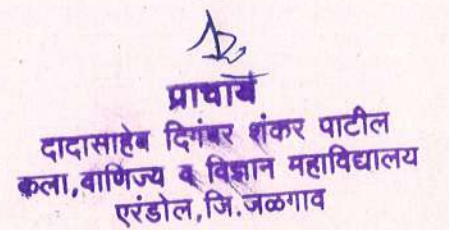 प्राचार्य
दादासाहेब दिगंबर शंकर पाटील
कला,वाणिज्य व विज्ञान महाविद्यालय
एरंडोल,जि.जळगाव